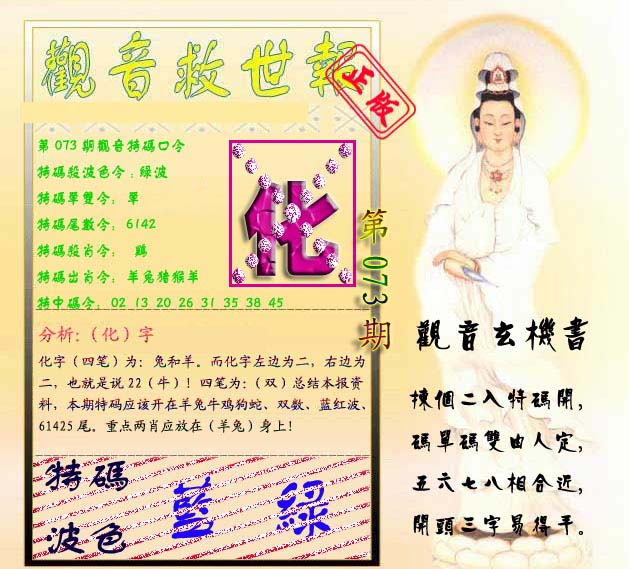 觀音救世報
正版
第 073 期觀音特碼口令
特碼殺波色令：綠波
特碼單雙令： 單
特碼尾數令： 6142
特碼殺肖令： 鷄
特碼出肖令： 羊兔猪猴羊
特中碼令： 02 13 20 26 31 35 38 45
化
第 073 期
分析:（化）字
化字（四笔）为：兔和羊。而化字左边为二，右边为
二，也就是说 22（牛）！四笔为：（双）总结本报资
料，本期特码应该开在羊兔牛鸡狗蛇、双数、蓝红波、
61425 尾。重点两肖应放在（羊兔）身上!
特碼
波色
藍 綠
觀音玄機書
揀個二入特碼開，
碼單碼雙由人定，
五六七八相合近，
開頭三字易得平。